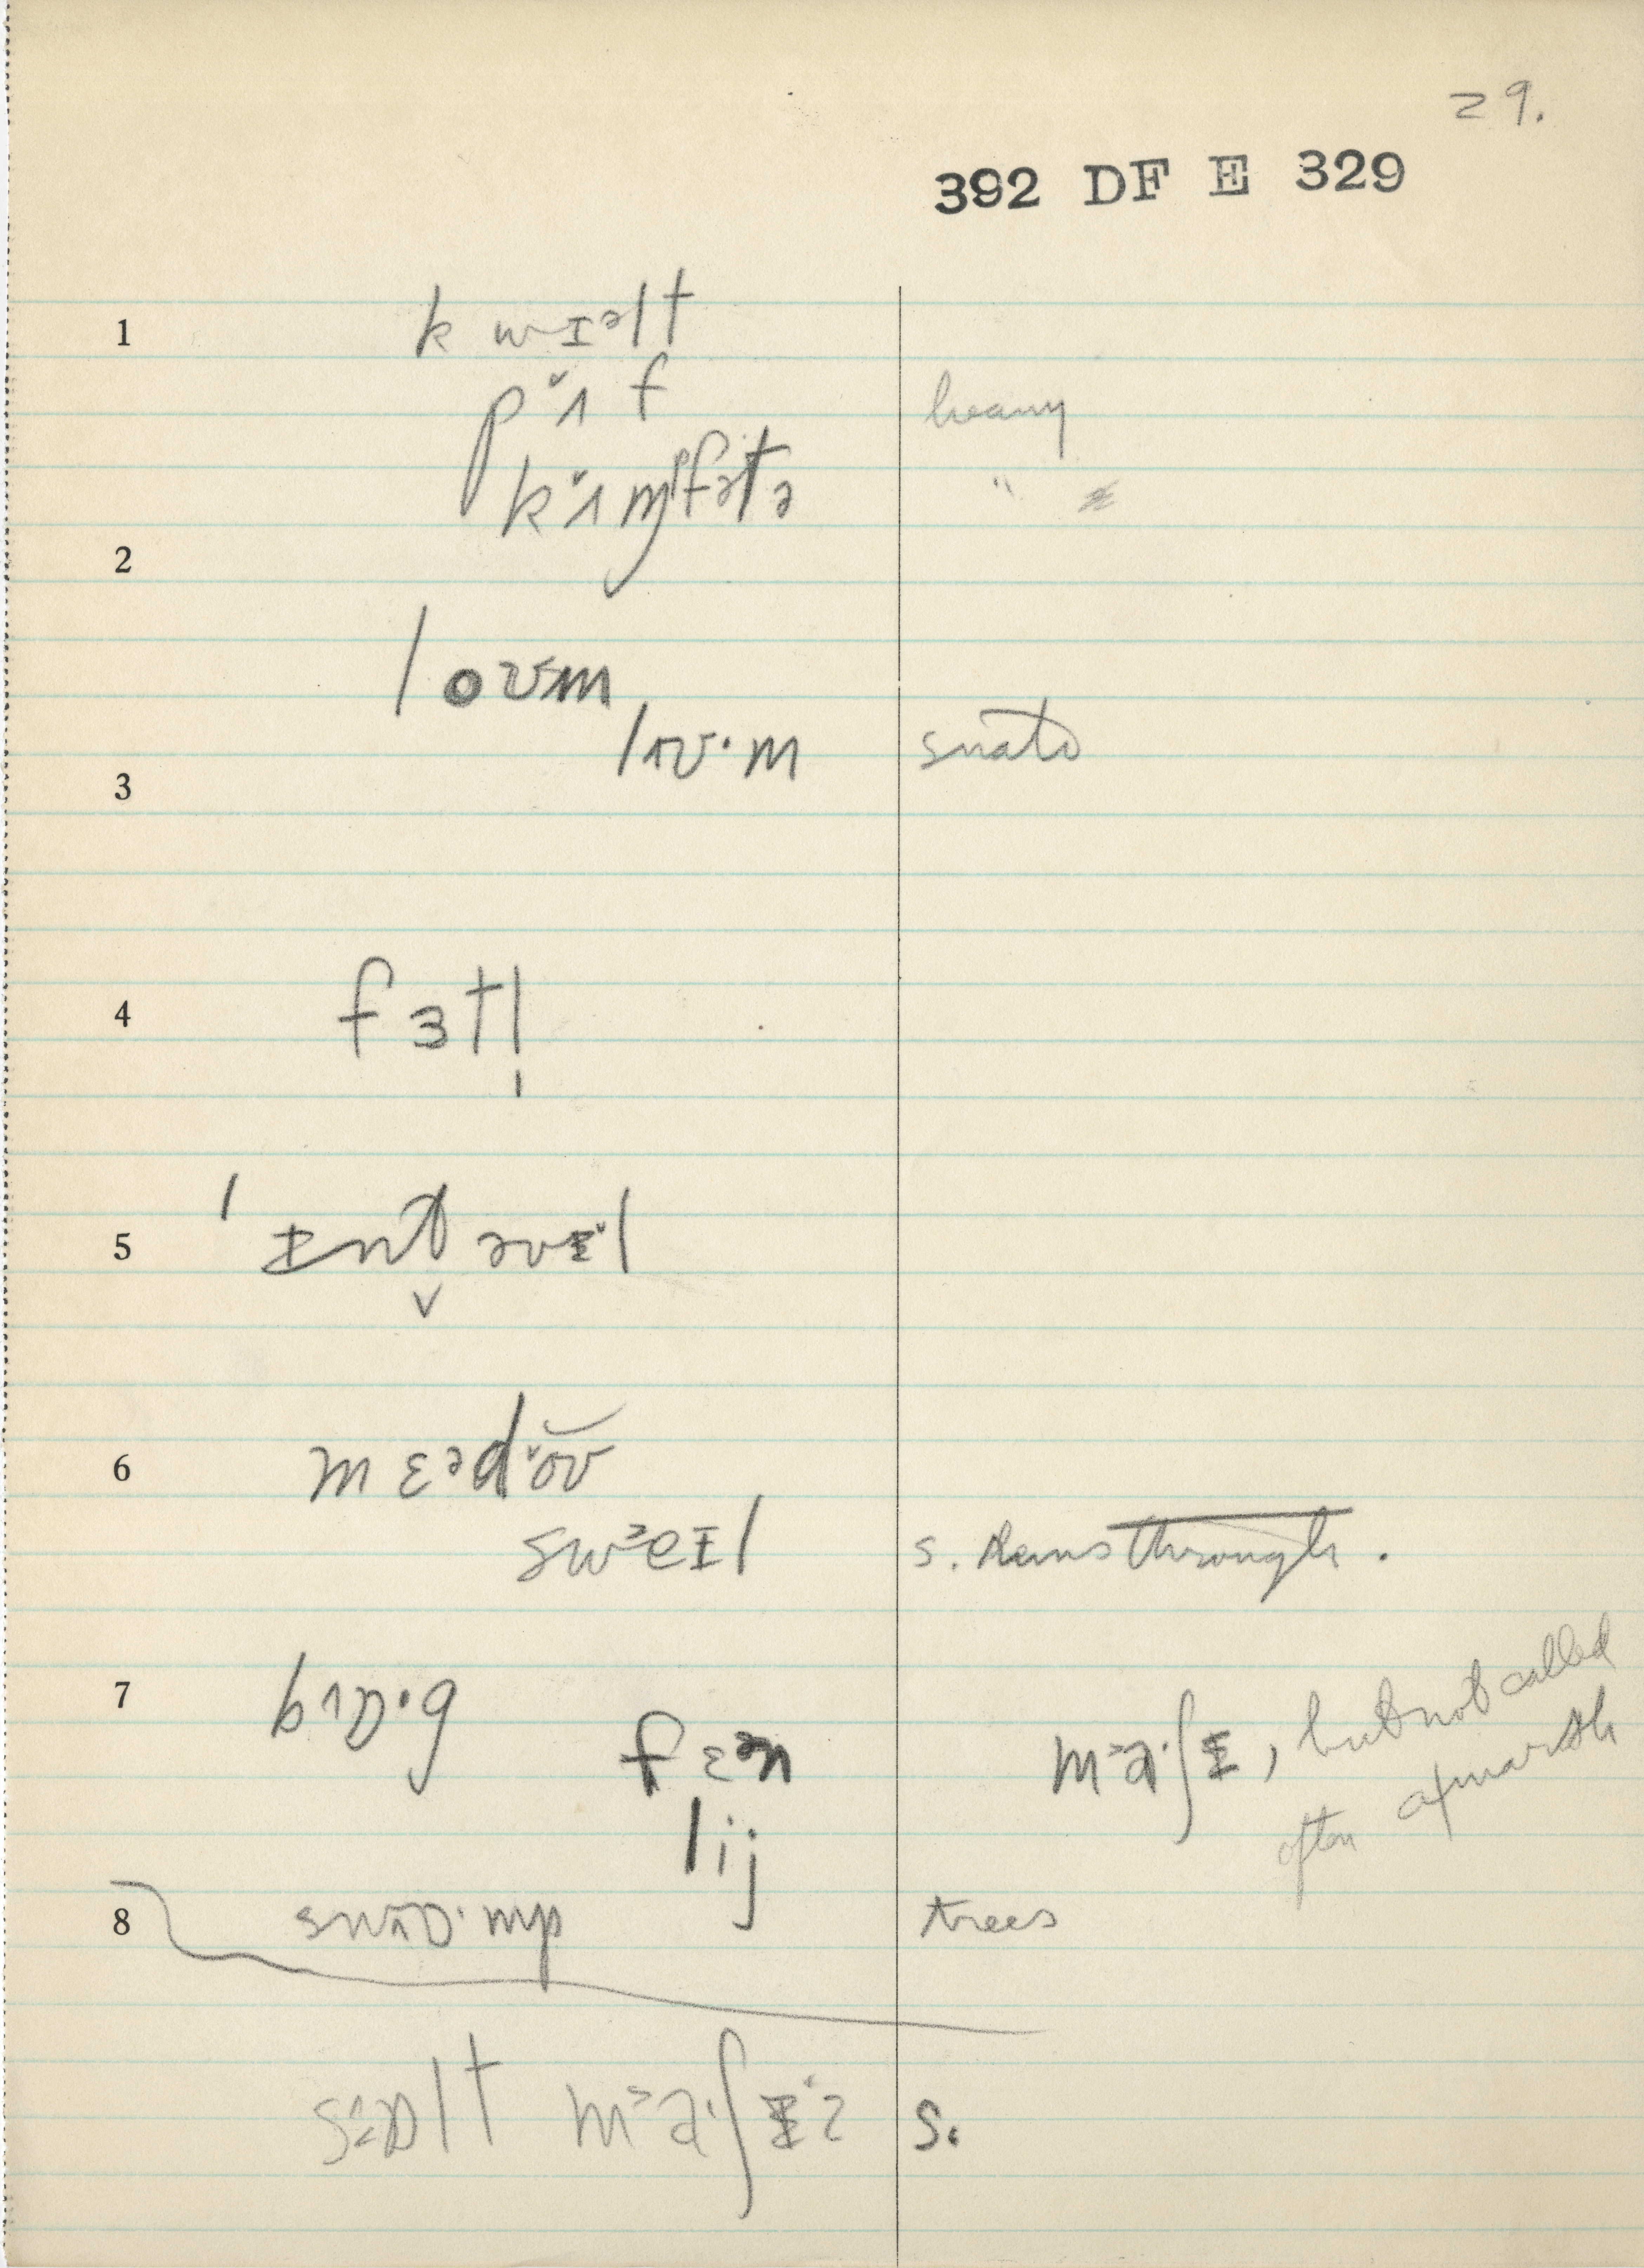 29.
392 DF E 329
1 k wɪᵊlt
pʌ̆f heavy
kʌ̆mfətə "
2
loʊm
lʌʊ·m
3
4 fɜtl̩
5 ˈɪnt̬əvɪl
6 mɛədŏʊ
swᵊeɪl s. runs through.
7 bʌɒ·g
fɛən mᵊa·ʃɨ, but not called
lij often a marsh
8 swʌɒ·mp trees
sɒlt mᵊa·ʃɨz s.